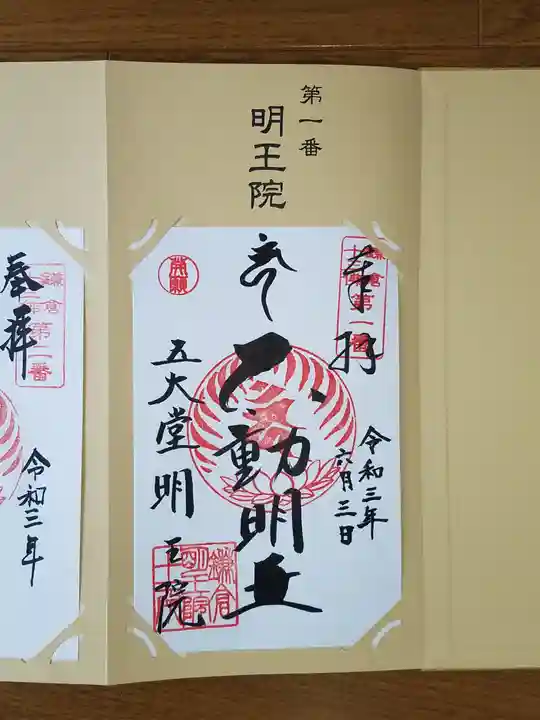 第一番
明王院
奉拝
鎌倉
第一番
令和三年
六月三日
不動明王
五大堂明王院
奉拝
鎌倉
第二番
令和三年